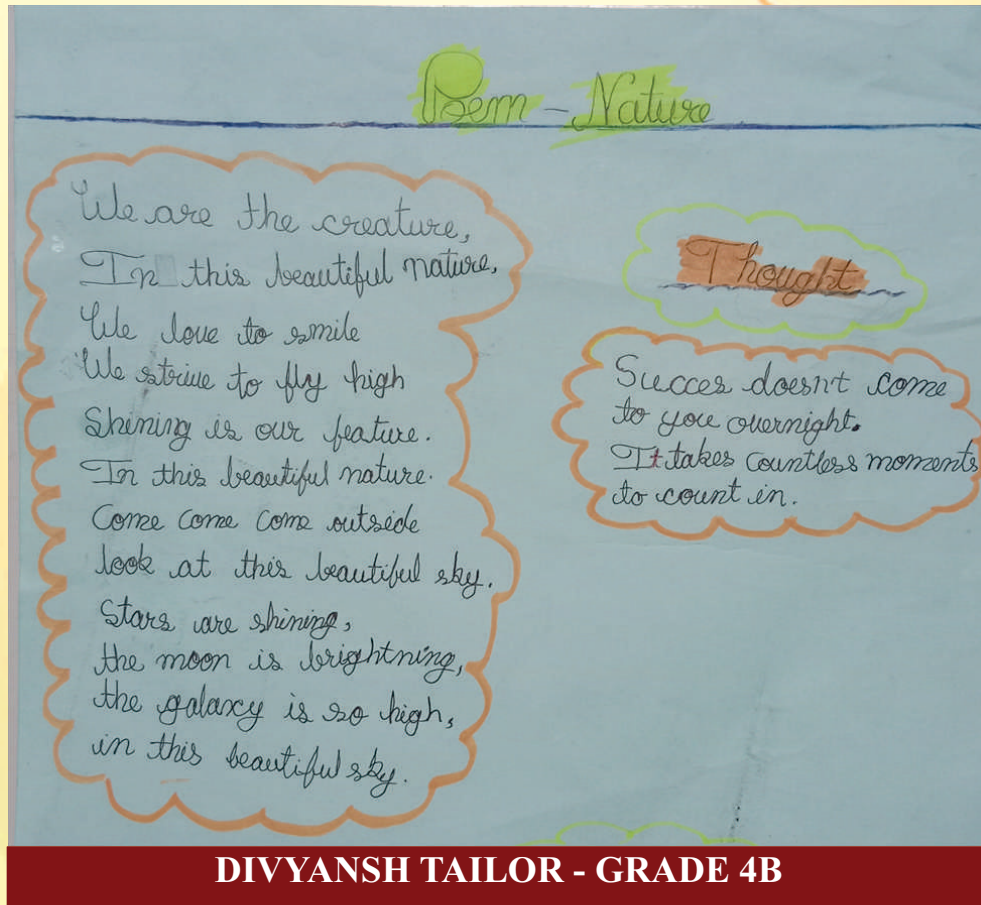 Poem - Nature
We are the creature,
In this beautiful nature,
We love to smile
We strive to fly high
Shining is our feature.
In this beautiful nature.
Come come come outside
look at this beautiful sky.
Stars are shining,
the moon is brightning,
the galaxy is so high,
in this beautiful sky.
Thought
Succes doesnt come
to you overnight.
It takes countless moments
to count in.
DIVYANSH TAILOR - GRADE 4B